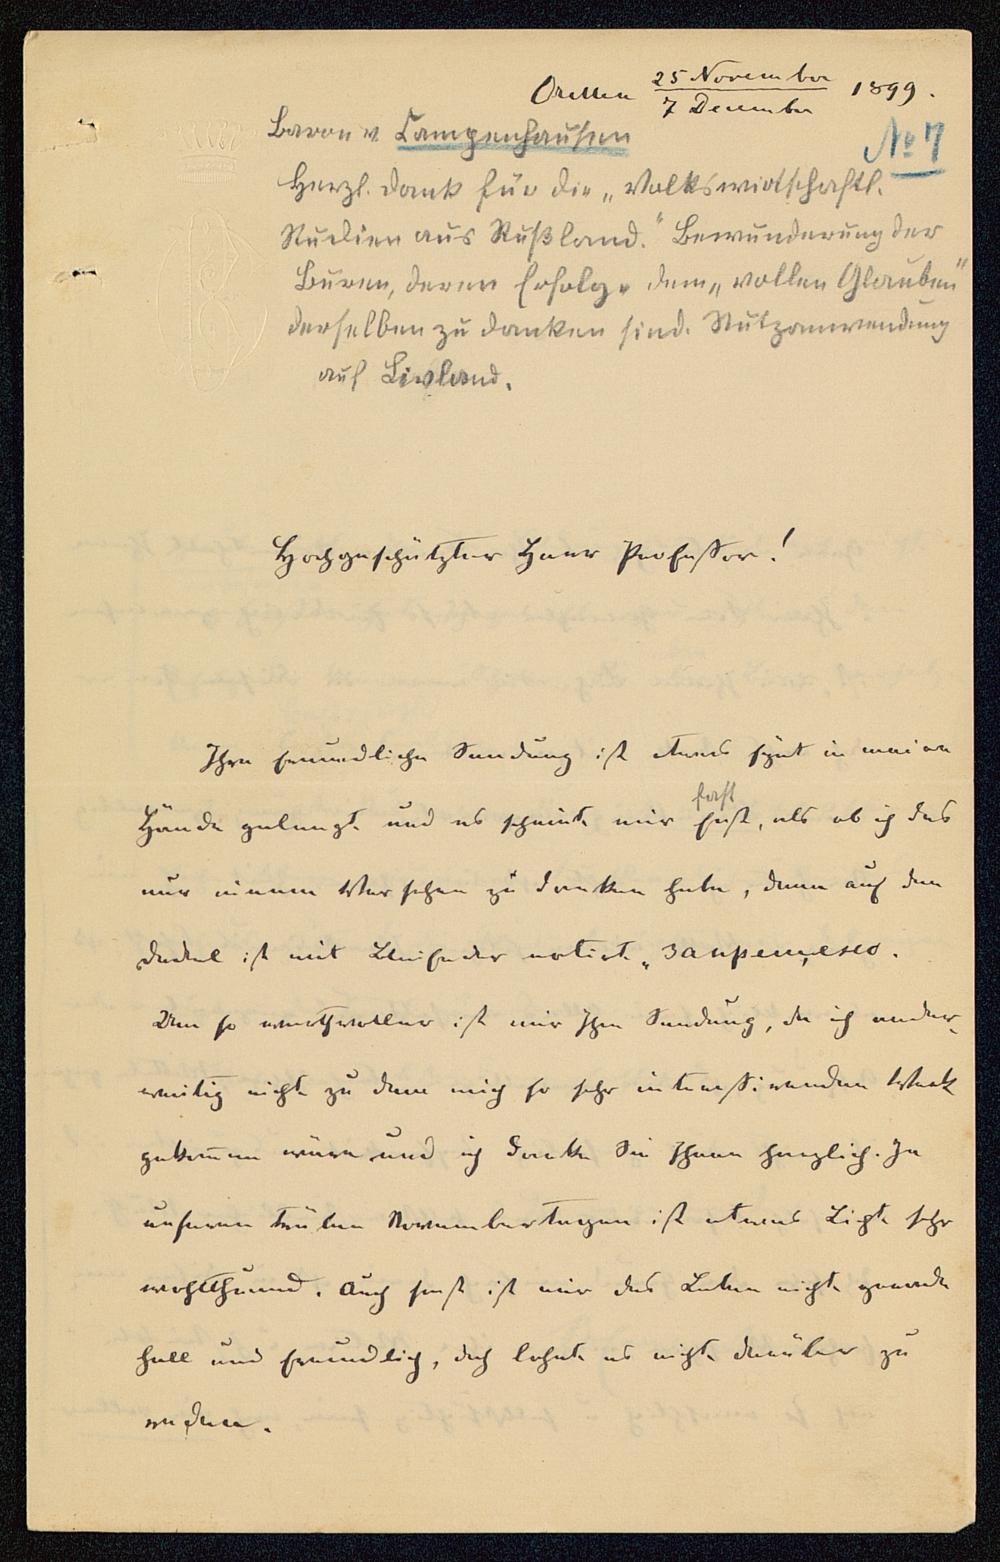 Orellen 25 November / 7 December 1899.
Baron v. Campenhausen
No 7
Herzl. Dank für die „Volkswirtschaftl.
Studien aus Rußland." Bewunderung der
Buren, deren Erfolge dem „vollen Glauben"
derselben zu danken sind. Nutzanwendung
auf Livland.
Hochgeschätzter Herr Professor!
Ihre freundliche Sendung ist etwas spät in meine
fast
Hände gelangt und es scheint mir fast, als ob ich das
nur einem Versehen zu danken habe, denn auf dem
Deckel ist mit Bleifeder notirt „запрещено.
Um so werthvoller ist mir Ihre Sendung, da ich ander-
weitig nicht zu dem mich so sehr interessirenden Werk
gekommen wäre und ich danke Sie Ihnen herzlich. In
unseren trüben Novembertagen ist etwas Licht sehr
wohlthuend. Auch sonst ist mir das Leben nicht gerade
hell und freundlich, doch lohnt es nicht darüber zu
reden.